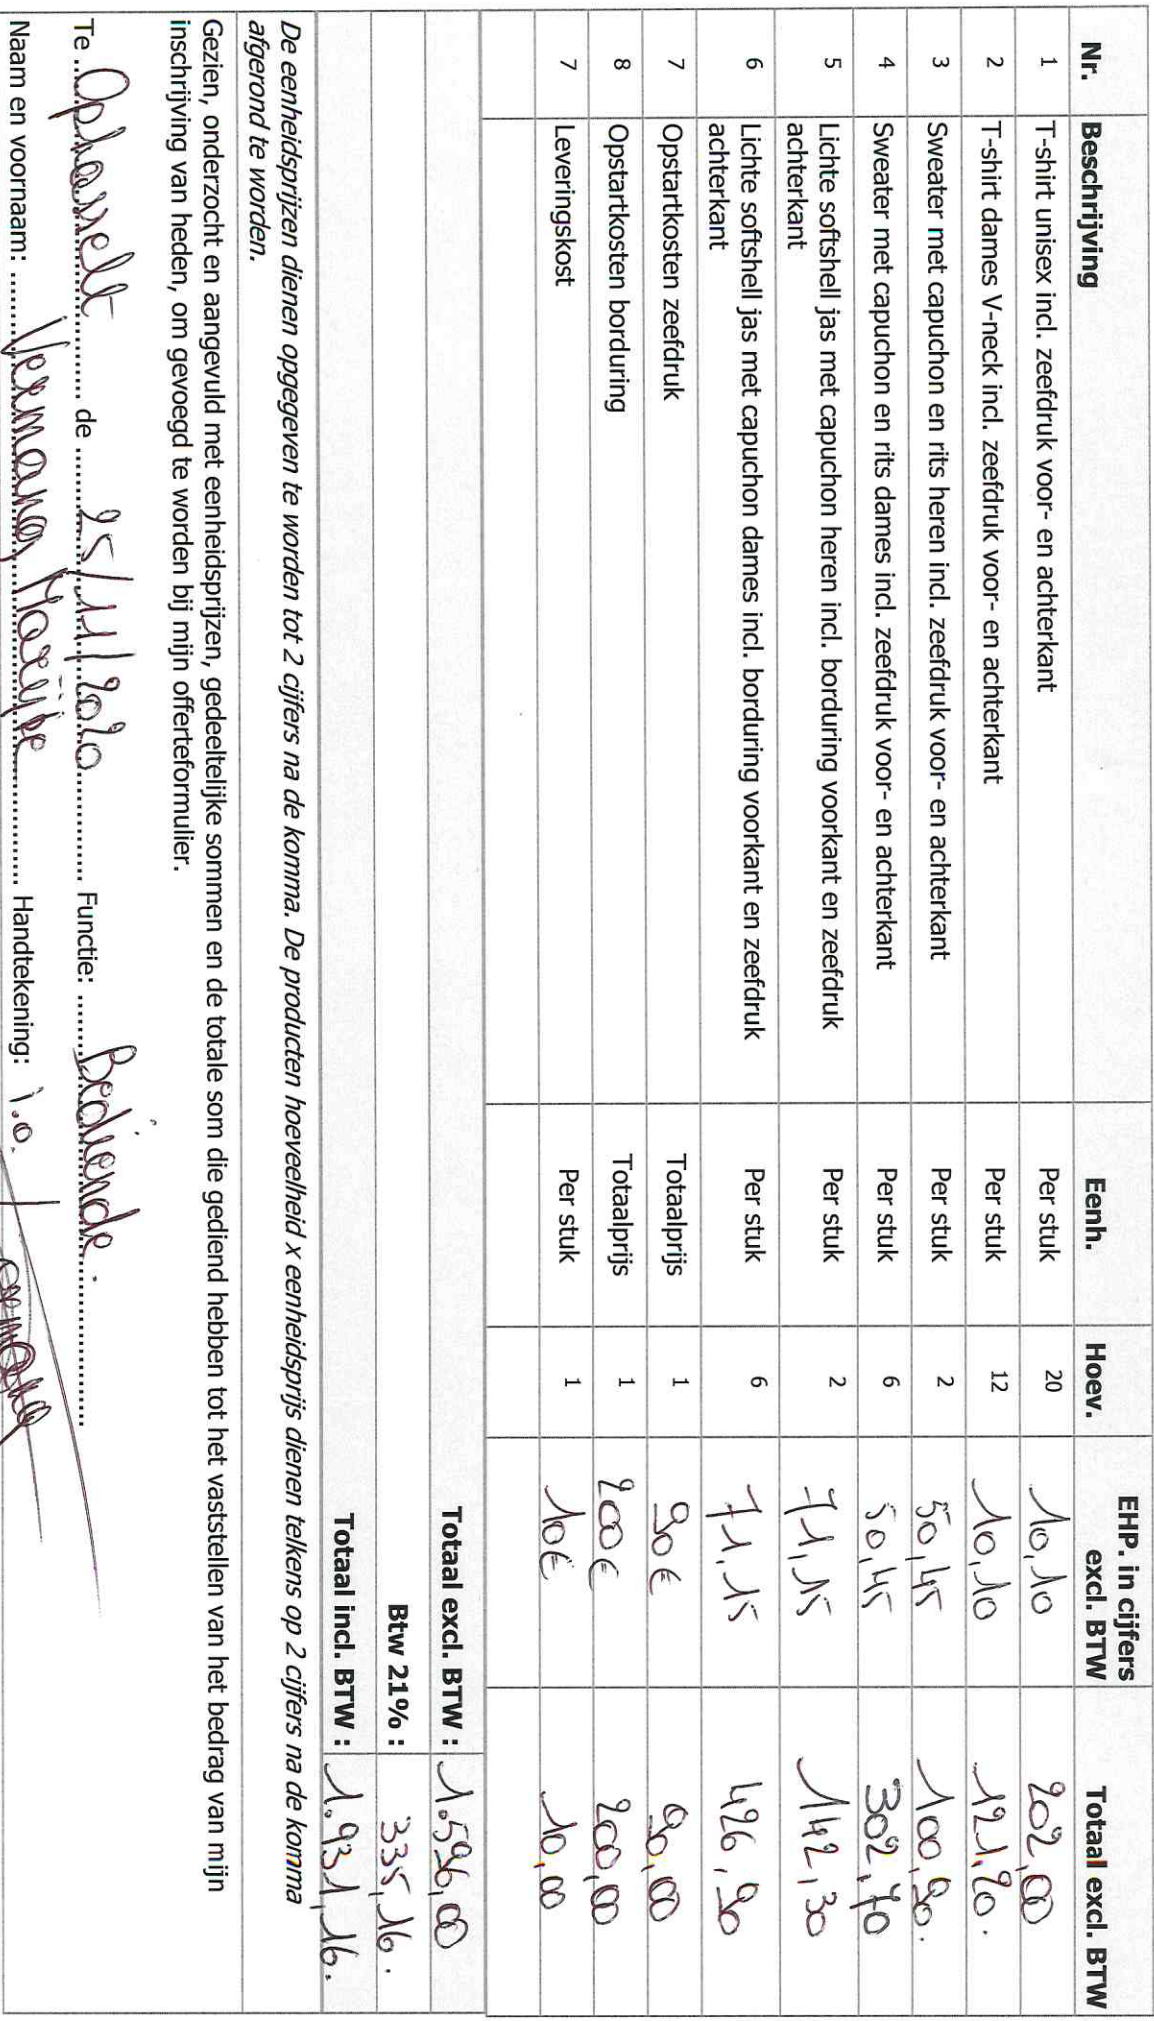 Nr. Beschrijving Eenh. Hoev. EHP. in cijfers excl. BTW Totaal excl. BTW
1 T-shirt unisex incl. zeefdruk voor- en achterkant Per stuk 20 10,10 202,00
2 T-shirt dames V-neck incl. zeefdruk voor- en achterkant Per stuk 12 10,10 121,20.
3 Sweater met capuchon en rits heren incl. zeefdruk voor- en achterkant Per stuk 2 50,45 100,90.
4 Sweater met capuchon en rits dames incl. zeefdruk voor- en achterkant Per stuk 6 50,45 302,70
5 Lichte softshell jas met capuchon heren incl. borduring voorkant en zeefdruk achterkant Per stuk 2 71,15 142,30
6 Lichte softshell jas met capuchon dames incl. borduring voorkant en zeefdruk achterkant Per stuk 6 71,15 426,90
7 Opstartkosten zeefdruk Totaalprijs 1 90€ 90,00
8 Opstartkosten borduring Totaalprijs 1 200€ 200,00
7 Leveringskost Per stuk 1 10€ 10,00
Totaal excl. BTW : 1.596,00
Btw 21% : 335,16.
Totaal incl. BTW : 1.931,16.
De eenheidsprijzen dienen opgegeven te worden tot 2 cijfers na de komma. De producten hoeveelheid x eenheidsprijs dienen telkens op 2 cijfers na de komma
afgerond te worden.
Gezien, onderzocht en aangevuld met eenheidsprijzen, gedeeltelijke sommen en de totale som die gediend hebben tot het vaststellen van het bedrag van mijn
inschrijving van heden, om gevoegd te worden bij mijn offerteformulier.
Te Ophasselt de 25/11/2020 Functie: Bediende.
Naam en voornaam: Vermane, Marijke Handtekening: i.o.